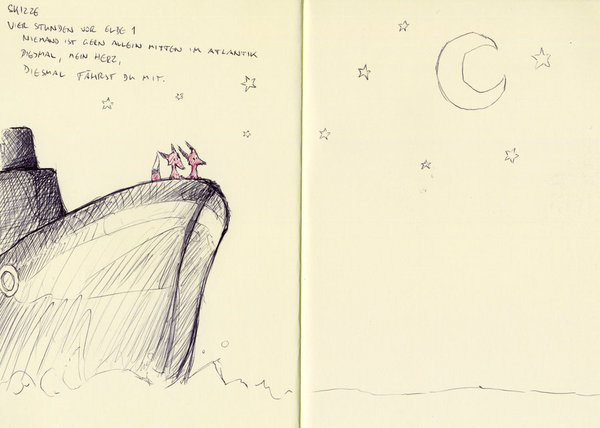 SKIZZE
VIER STUNDEN VOR ELBE 1
NIEMAND IST GERN ALLEIN MITTEN IM ATLANTIK
DIESMAL, MEIN HERZ,
DIESMAL FÄHRST DU MIT.